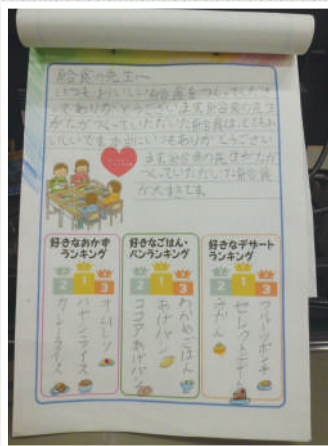 給食の先生へ
いつもおいしい給食をつくっていただい
てありがとうございます。給食の先生
がたがつくっていただいた給食は、とてもお
いしいです。本当にいつもありがとうござい
ます。給食の先生がたが
つくっていただいた給食
が大すきです。
好きなおかず
ランキング
2 1 3
オムレツ
ハヤシライス
カレーライス
好きなごはん・
パンランキング
2 1 3
わかめごはん
あげパン
ココアあげパン
好きなデザート
ランキング
2 1 3
フルーツポンチ
セレクトデザート
みかん